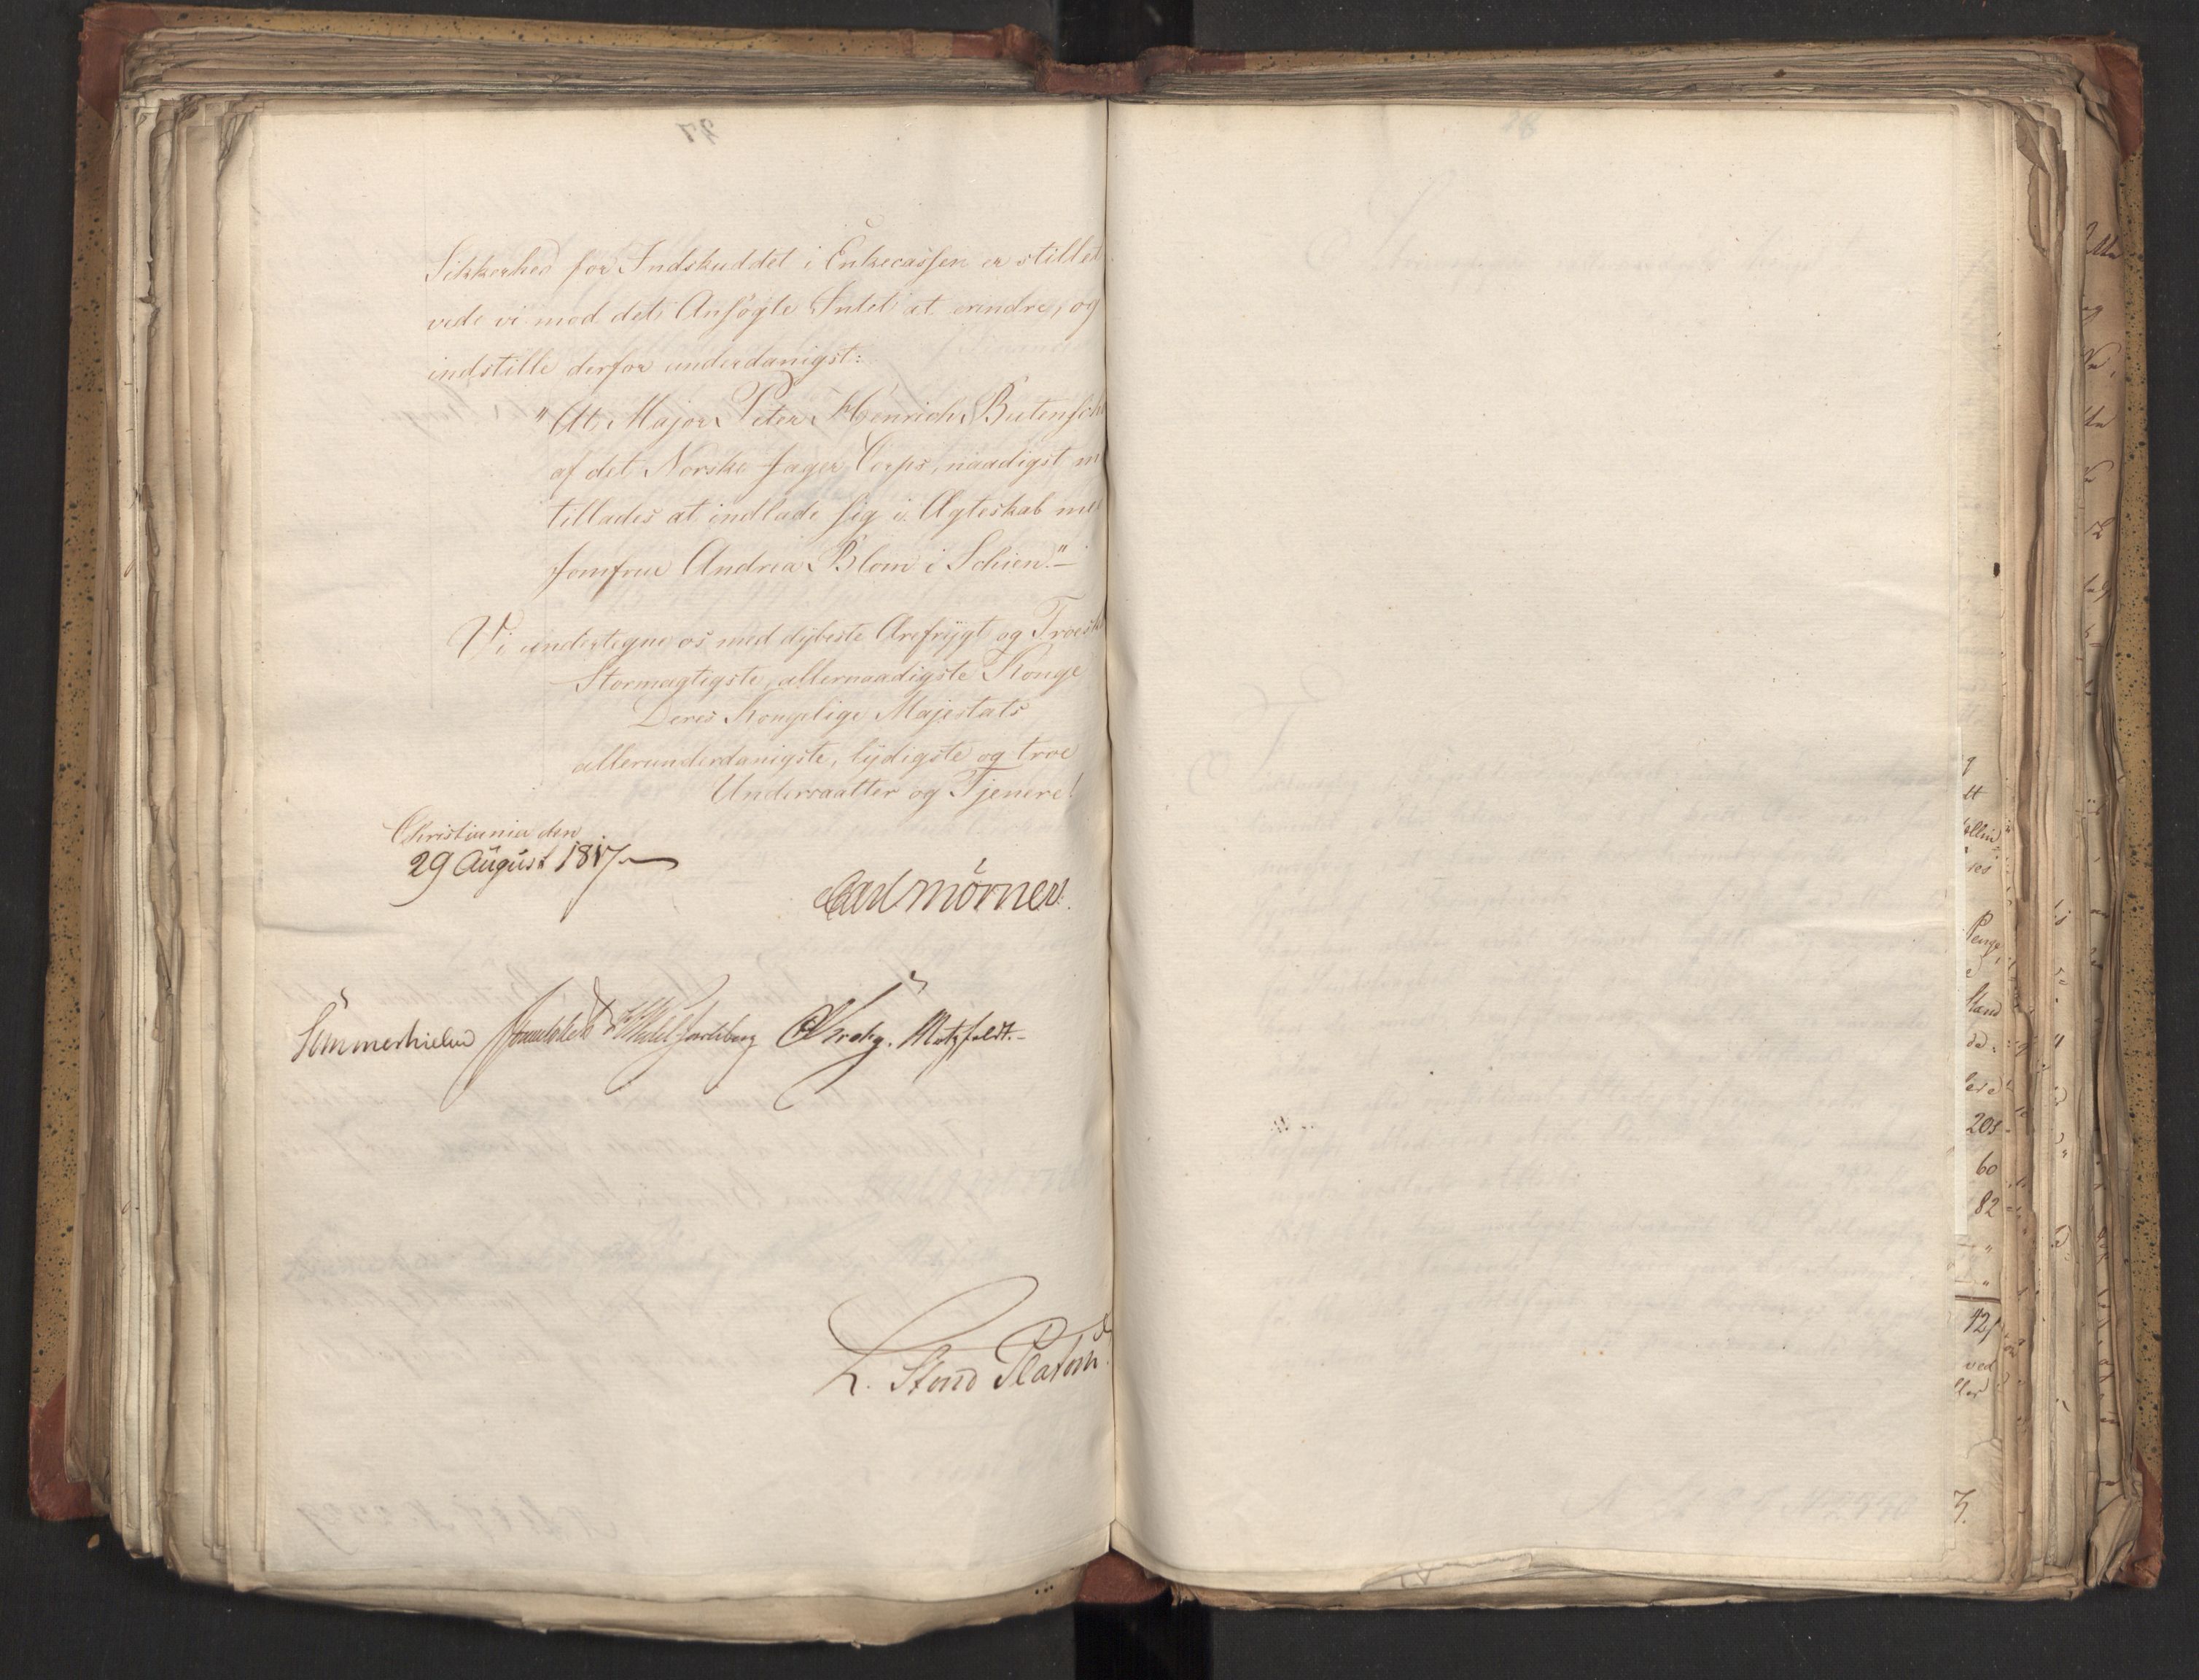 Sikkerhed for Indskuddet i Enkecassen er stillet
vide vi mod det Ansøgte Intet at erindre, og
indstille derfor underdanigst:
"At Major Peter Henrich Butensch
af det Norske Jæger Corps, naadigst m
tillades at indlade sig i Ægteskab med
Jomfrue Andrea Blom i Schien."
Vi undertegne os med dybeste Ærefrygt og Troesk
Stormægtigste, allernaadigste Konge
Deres Kongelige Majestæts
allerunderdanigste, lydigste og troe
Undersaatter og Tjenere!
Christiania den
29 August 1817
Carl Mörner
Sommerhielm Wedel Jarlsberg Krohg. Motzfeldt.
L. Stoud Platou